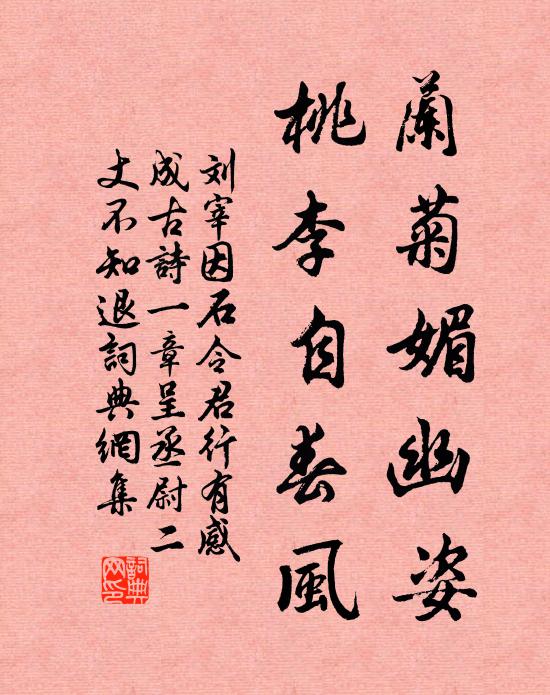 蘭菊媚幽姿
桃李自春風
刘宰因石令君行有感
成古詩一章呈丞尉二
丈不知退詞典網集
詞典
网印